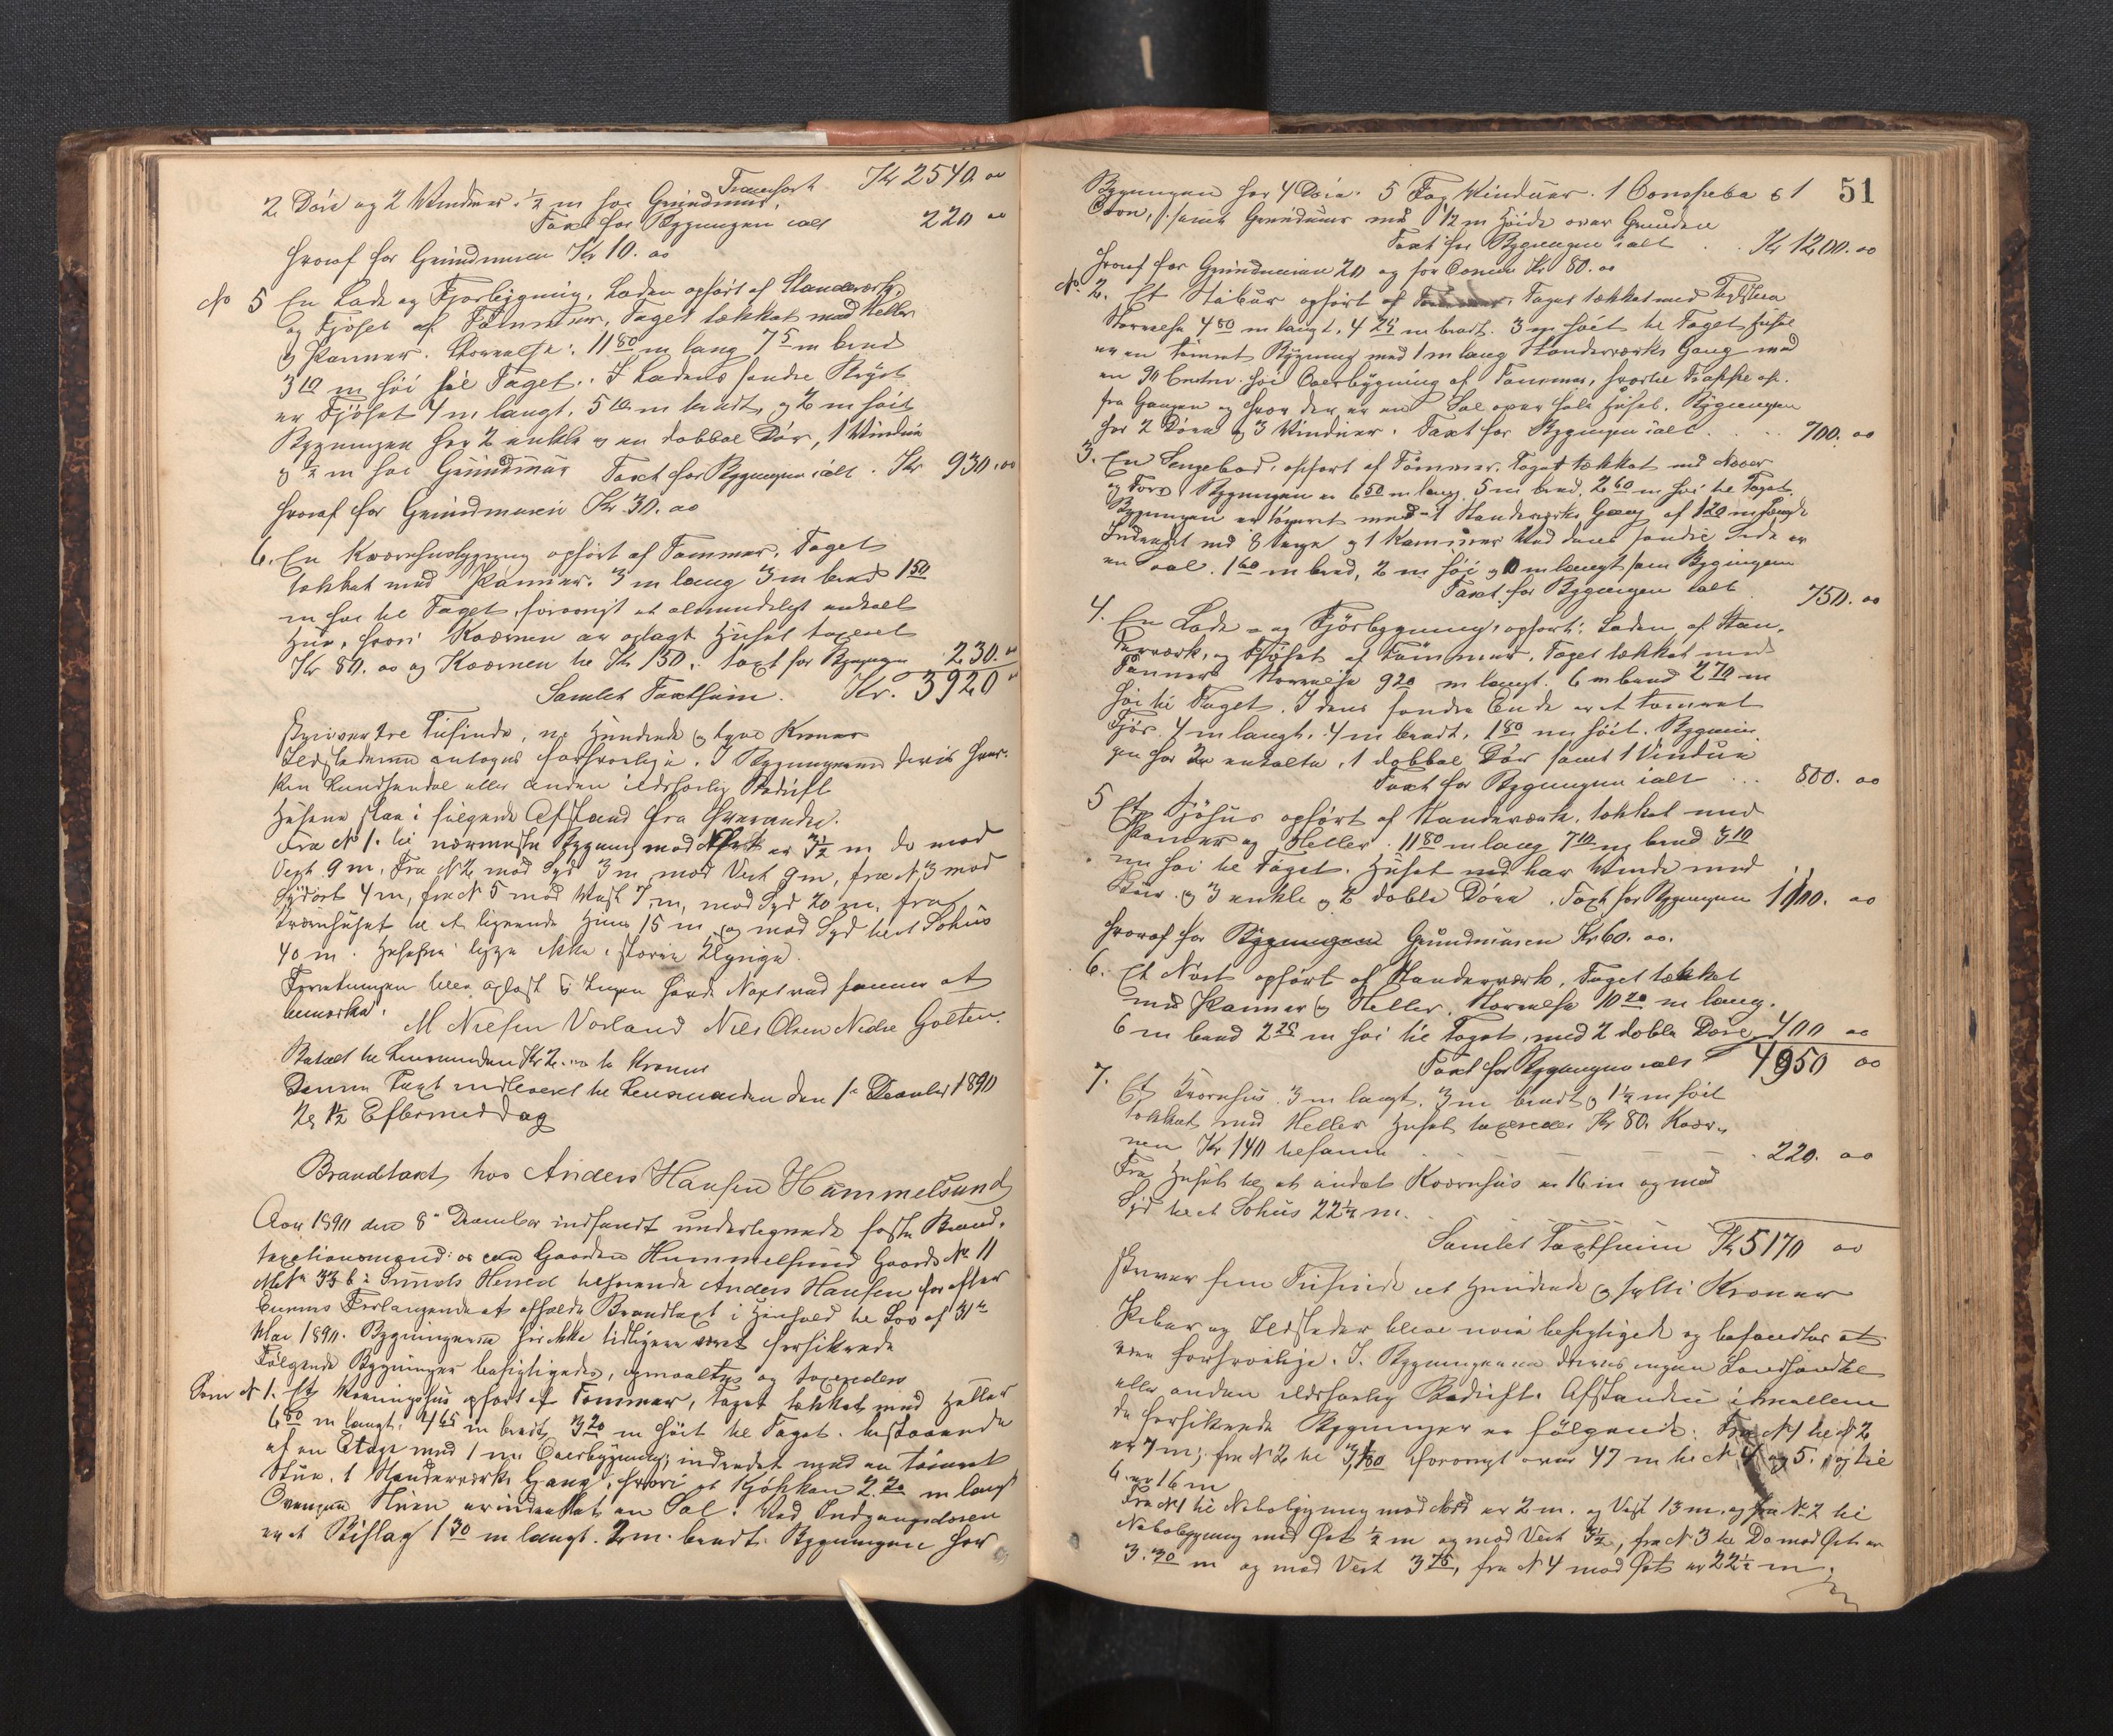 Transport Kr 2540. oo
2 Döre og 2 Vinduer. ½ m höi Grundmur.
Taxt for Bygningen ialt 220 oo
hvoraf for Grundmuren Kr 10. oo
No 5 En Lade og Fjosbygning, Laden opført af Standerværk,
og Fjöset af Tömmer, Taget tækket med Heller
og Panner. Störrelse: 11 80 m lang 7 5 m bred
3 10 m höi til Taget. I Ladens søndre
er Fjöset 4 m langt, 5 10 m bredt, og 2 m höit
Bygningen har 2 enkle og en dobbel Dör, 1 Vindue
og ½ m höi Grundmur Taxt for Bygningen ialt. Kr 930. oo
hvoraf for Grundmuren Kr. 30. oo
6. En Kværnhusbygning opført af Tømmer, Taget
tækket med Panner. 3 m lang 3 m bred 1 50
m höi til Taget, forøvrigt et almindeligt enkelt
Huus, hvori Kværnen er anlagt Huset taxeret
Kr 80. oo og Kværnen til Kr 150. taxt for Bygningen 230. oo
Samlet Taxtsum. Kr. 3920 oo
skriver tre Tusinde, ni Hundrede og tyve Kroner
Ildstederne antoges forsvarlige. I Bygningerne drives hver-
ken Landhandel eller anden ildsfarlig Bedrift
Husene staa i fölgende Afstand fra hverandre.
Fra No 1. til nærmeste Bygning mod er 3½ m do mod
Vest 9 m, Fra No 2 mod Syd 3 m mod Vest 9 m, fra No 3 mod
Sydöst 4 m, fra No 5 mod Vest 7 m, mod Syd 20 m, fra
Kværnhuset til et lignende Huus 15 m og mod Syd til et Söhus
40 m. Husene ligge ikke i større Klynge.
Forretningen blev oplæst og Ingen havde Noget ved samme at
bemærke.
M Nielsen Vorland Nils Olsen Nedre Golten.
Betalt til Lensmanden Kr 2. oo to Kroner
Denne Taxt indleveret til Lensmanden den 1ste December 1890
Kl ½ Eftermiddag
Brandtaxt hos Anders Hansen Hummelsund
Aar 1890 den 8de December indfandt undertegnede faste Brand-
taxtionsmænd os paa Gaarden Hummelsund Gaards No 11
Matr 33 b i Sunds Herred tilhørende Anders Hansen for efter
Eierens Forlangende at afholde Brandtaxt i Henhold til Lov af 31te
Mai 1890. Bygningerne har ikke tidligere været forsikrede
Følgende Bygninger besigtigedes, opmaaltes og taxeredes
Som No 1. Et Vaaningshus opført af Tømmer, Taget tækket med Heller
6 80 m langt, 4 65 m bredt, 3 20 m höit til Taget. bestaaende
af en Etage med 1 m Overbygning, indredet med en tömret
Stue, 1 Standerværks Gang, hvori et Kjökken 2. 20 m langt
Ovenpaa Stuen er indredet en Sal. Ved Indgangsdøren
er et Bislag 1 30 m langt. 2 m bredt. Bygningen har
51
Bygningen har 4 Döre. 5 Fag Vinduer. 1 og 1
Ovn, samt Grundmur med ½ m Höide over Grunden
Taxt for Bygningen ialt . . Kr 1200. oo
hvoraf for Grundmuren 20 og for Ovnen Kr 80. oo
No. 2. Et Stabur opført af Taget tækket med
Störrelse 4 80 m langt, 4 25 m bredt. 3 m höit til Taget Huset
er en tömret Bygning med 1 m lang Standerværks Gang med
en 90 Centm. höi Overbygning af Tømmer, hvortil Trappe op
fra Gangen og hvor der er en Sal over hele Huset. Bygningen
har 2 Döre og 3 Vinduer. Taxt for Bygningen ialt . . . 700. oo
3. En Sengebod, opført af Tömmer, Taget tækket med Næver
og Torv. Bygningen er 6 50 m lang. 5 m bred. 2 60 m höi til Taget.
Bygningen er tömret med 1 Standerværks Gang af 1 20 m Længde
Indredet med 8 Senge og 1 Kammer Ved dens søndre Side er
en Sval. 1 60 m bred, 2 m höi og m langt som Bygningen
Taxt for Bygningen ialt . 750. oo
4. En Lade- og Fjösbygning, opført: Laden af Stan-
derværk, og Fjöset af Tömmer, Taget tækket med
Panner Störrelse 9 20 m langt. 6 m bred 2 70 m
höi til Taget. I dens søndre Ende er et tömret
Fjös. 4 m langt, 4 m bredt, 1 80 m höit. Bygnin-
gen har 2 enkelte, 1 dobbel Dör samt 1 Vindue
Taxt for Bygningen ialt ... 800. oo
5 Et Sjöhus opført af Standerværk, tækket med
Panner og Heller. 11 80 m lang 7 10 m bred 3 10
m höi til Taget. Huset har Vinde med
og 3 enkle og 2 doble Döre. Taxt for Bygningen 1100. oo
hvoraf for Grundmuren Kr 60. oo.
6. Et Nöst opført af Standerværk, Taget tækket
med Panner og Heller. Størrelse 10 20 m lang.
6 m bred 2 25 m höi til Taget, med 2 doble Döre 400 oo
Taxt for Bygningen ialt 4950 oo
7. Et Kværnhus. 3 m langt. 3 m bredt og 1½ m höit
tækket med Heller Huset taxeredes Kr 80. Kvær-
nen Kr 140 tilsammen . . . 220. oo
Fra Huset til et andet Kværnhus er 16 m og mod
Syd til et Söhus 22½ m.
Samlet Taxtsum Kr 5170 oo
skriver fem Tusinde et Hundrede og sytti Kroner
Piber og Ildsteder bleve nöie besigtigede og befandtes at
være forsvarlige. I Bygningerne drives ingen Landhandel
eller anden ildsfarlig Bedrift. Afstanden imellem
de forsikrede Bygninger er fölgende: Fra No 1 til No 2
er 7 m; fra No 2 til 3, forøvrigt over 47 m til No 4 og 5. og til
6. er 16 m
Fra No 1 til Nabobygning mod Nord er 2 m. og Vest 13 m. og fra No 2 til
Nabobygning mod Öst ½ m og mod Vest 3½, fra No 3 til Do mod Öst er
3. 30 m og mod Vest 3 75, fra No 4 mod Öst er 22½ m.